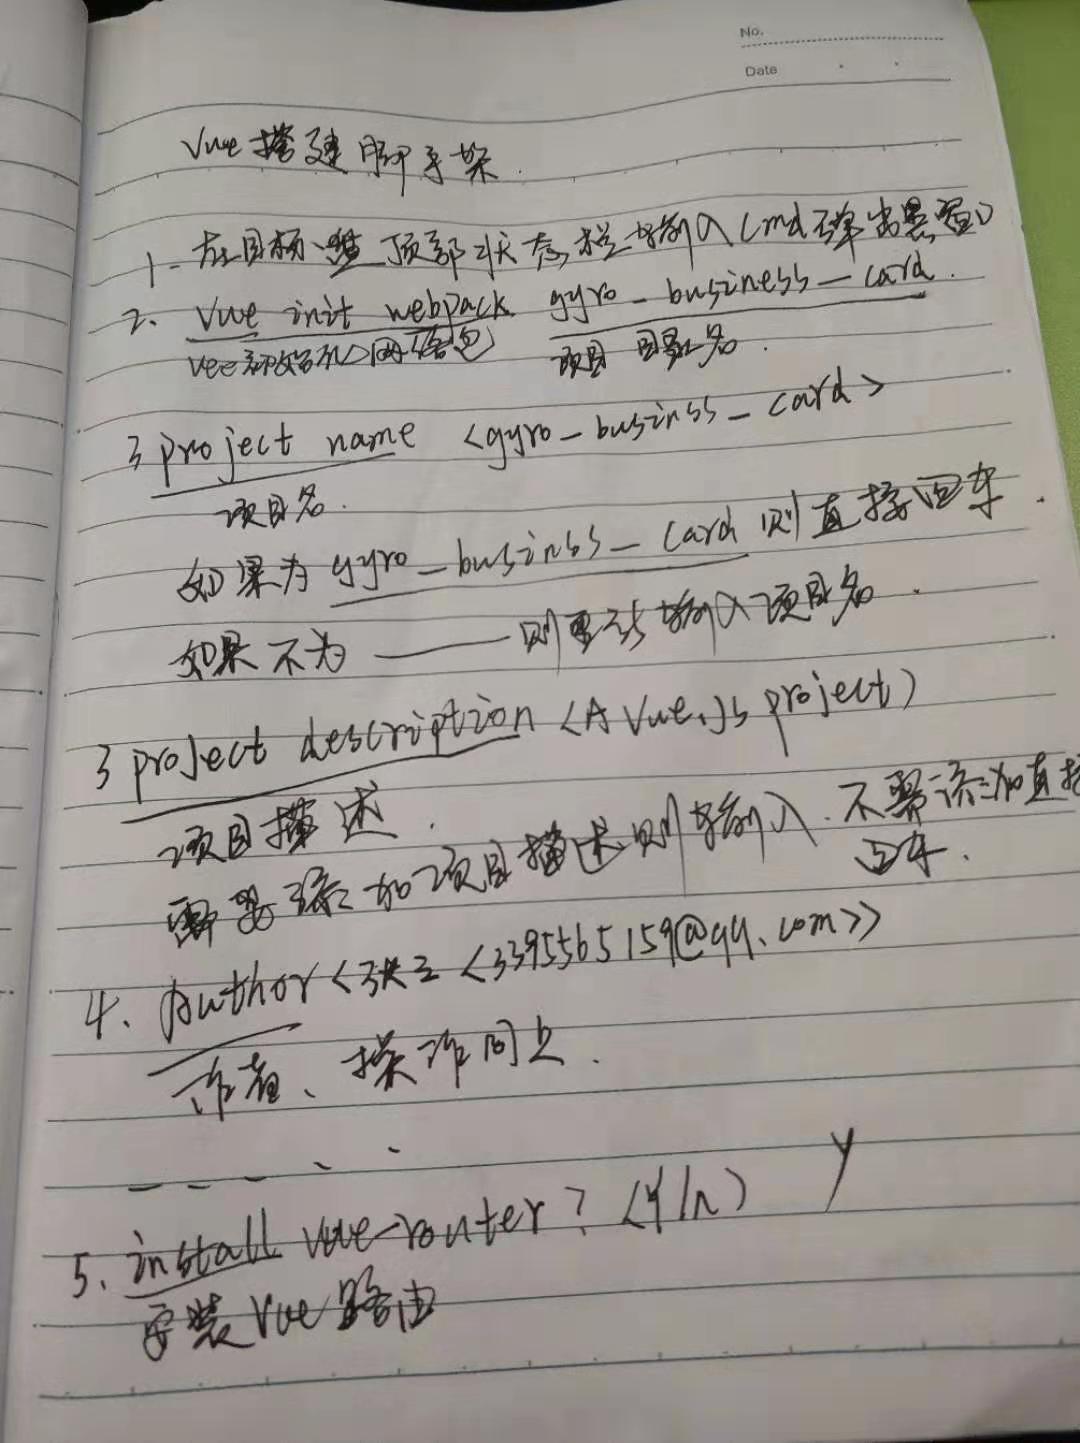 No.
Date
Vue搭建脚手架.
1. 在目标 顶部状态栏输入cmd弹出黑窗口
2. Vue init webpack gyro_business_card.
vue初始化网络包 项目目录名.
3 project name <gyro_businss_card>
项目名.
如果为gyro_businss_card则直接回车.
如果不为——则重新输入项目名.
3 project description <A Vue.js project>
项目描述.
需要添加项目描述则输入.不需添加直接
回车.
4. Author<张三<3395565159@qq.com>>
作者、操作同上.
5. install vue-router? (Y/n) y
安装Vue路由